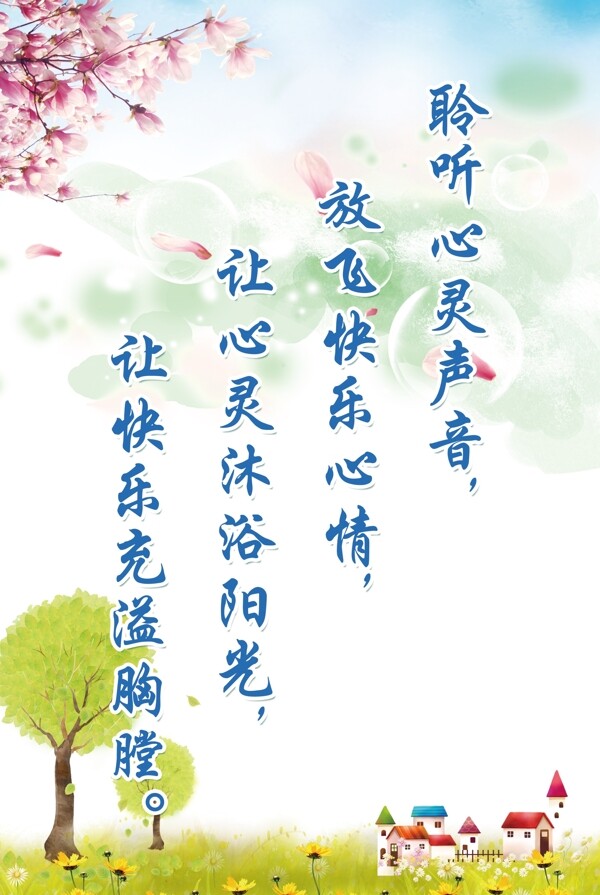 聆听心灵声音，
放飞快乐心情，
让心灵沐浴阳光，
让快乐充溢胸膛。